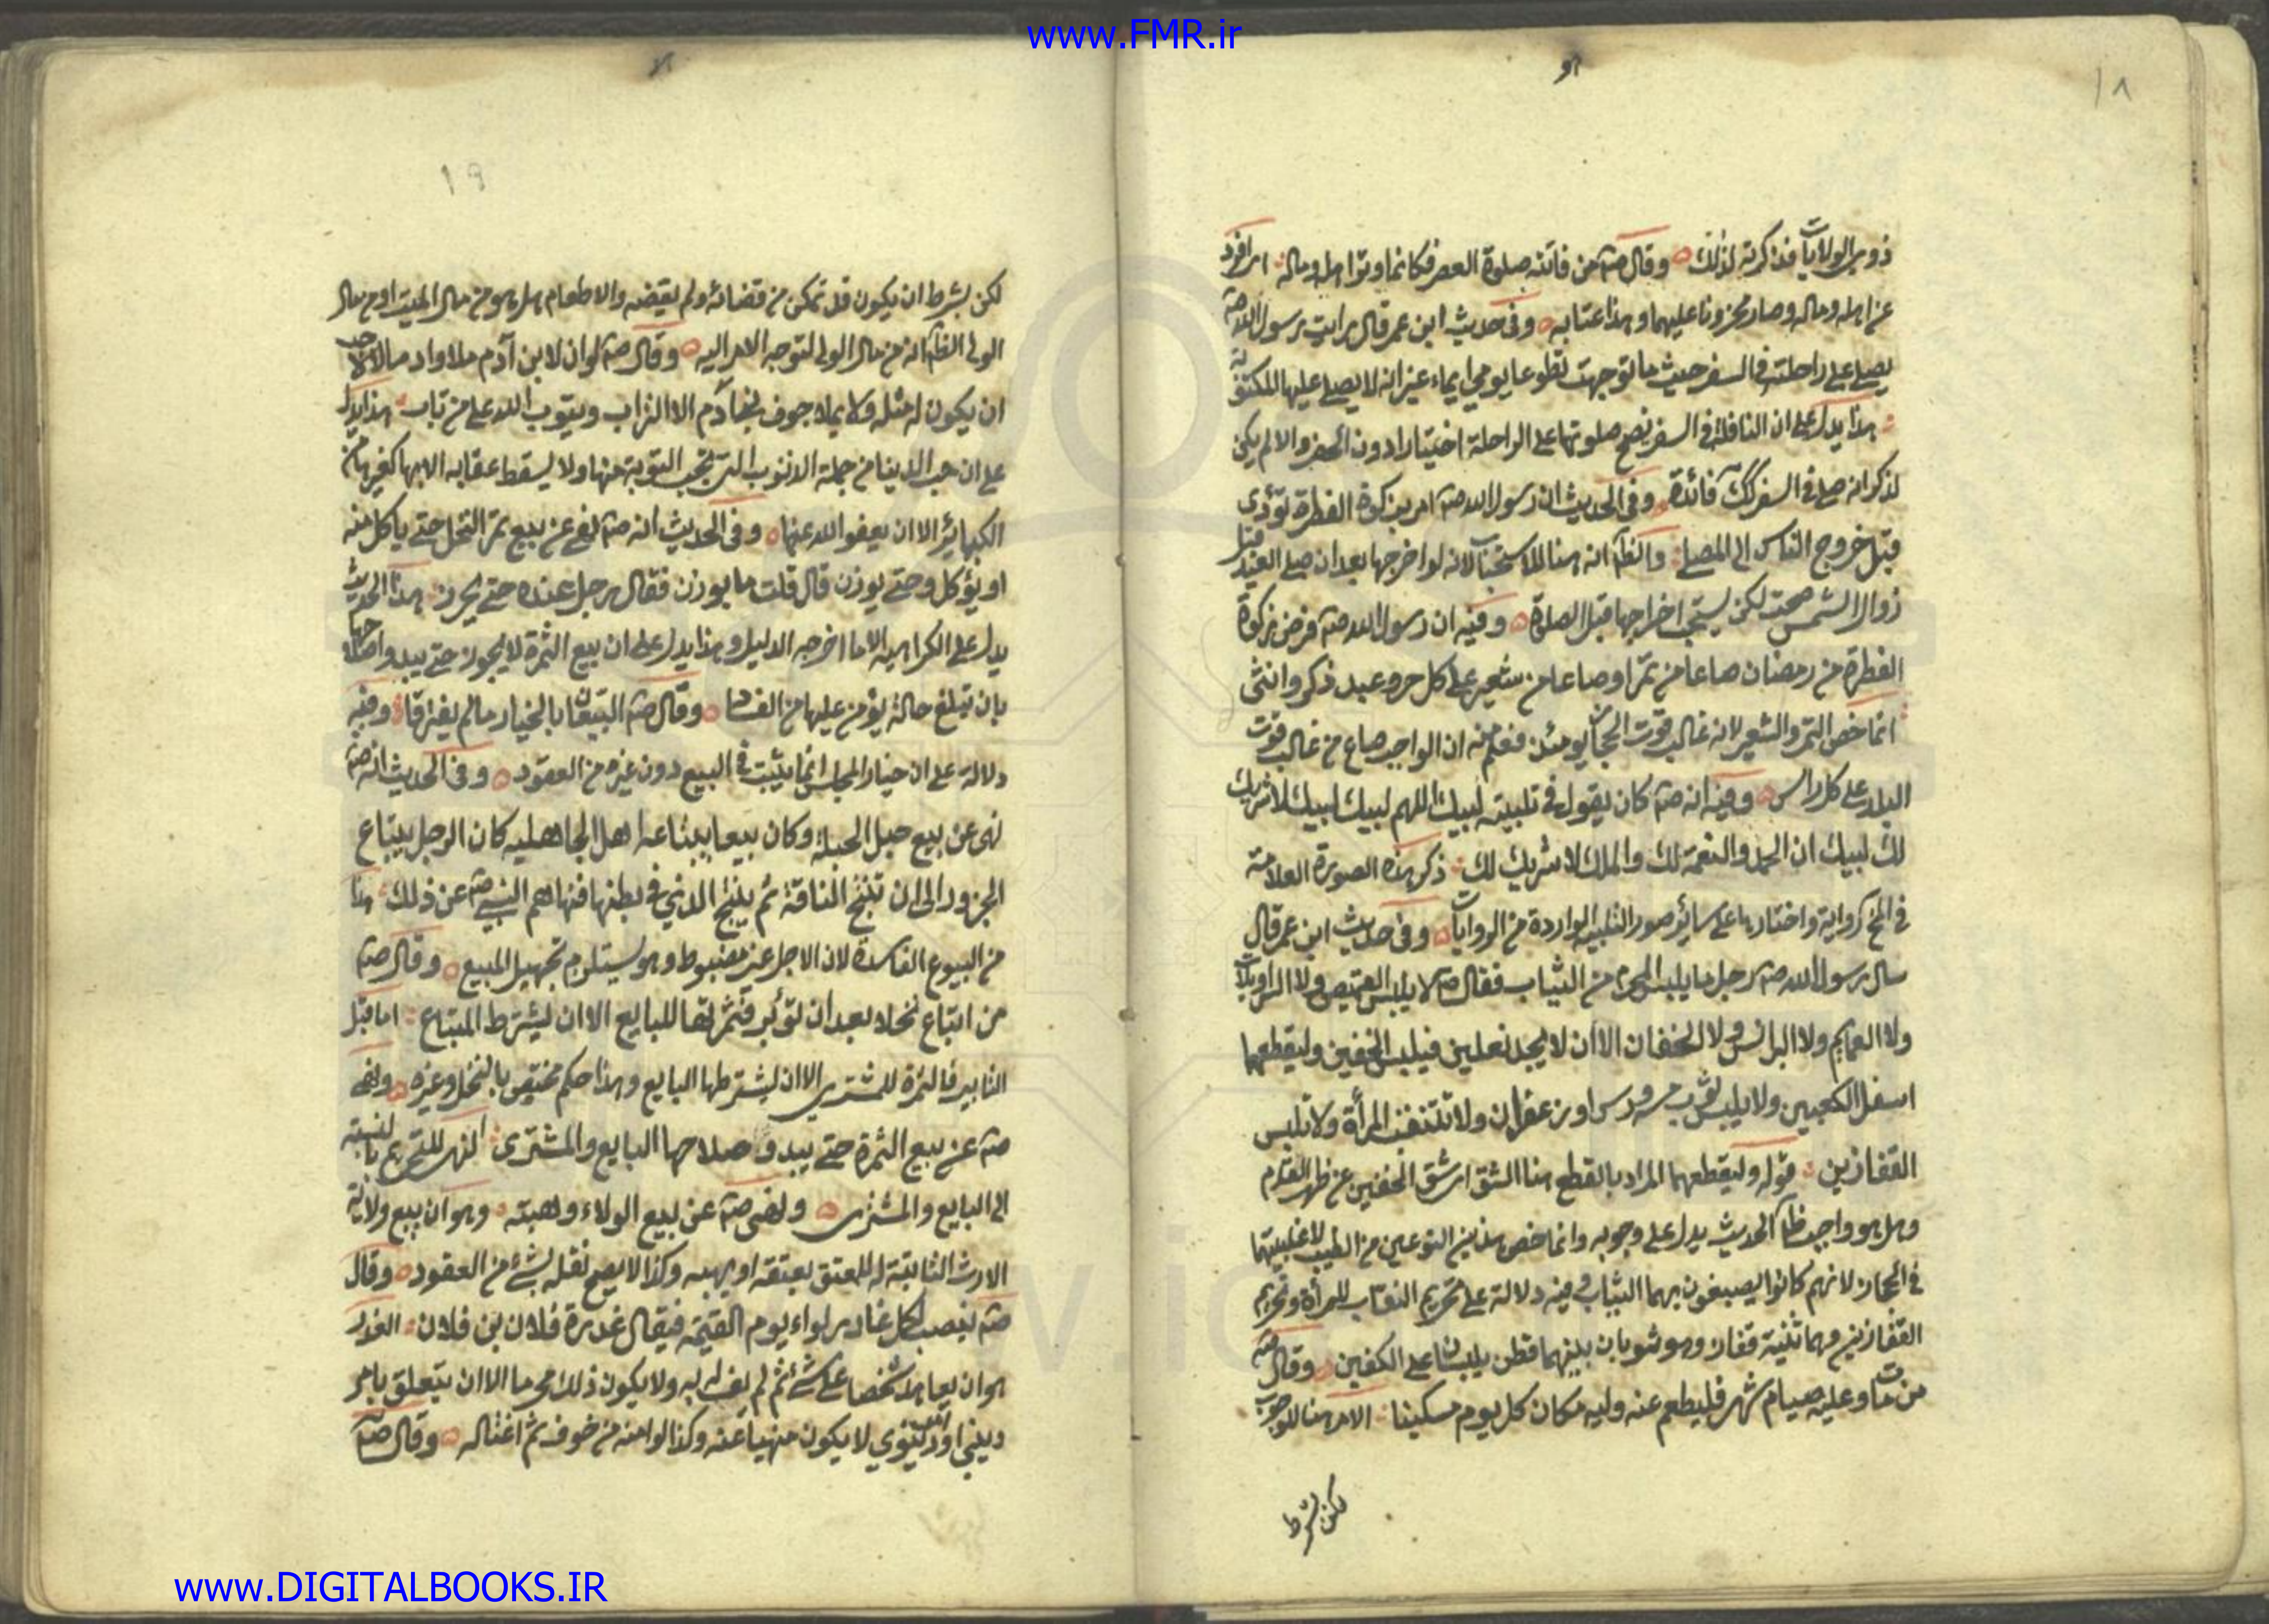 www.FMR.ir
١٨
ذوي الولايات فذكرته لذلك وقال صه من فاتته صلوة العصر فكانما وتر اهله وماله اى افرد
عن اهله وماله وصار محزونا عليهما وهذا عتابه وفى حديث ابن عمر قال رايت رسول الله صه
يصلي على راحلته في السفر حيث ما توجهت تطوعا يومي ايماء غير انه لا يصلي عليها المكتوبة
هذا يدل على ان النافلة في السفر تصح صلوتها على الراحلة اختيارا دون الحضر والا لم يكن
لذكر انه صلى في السفر فائدة وفى الحديث ان رسول الله صه امر بزكوة الفطرة تؤدى
قبل خروج الناس الى المصلى انه هنا للاستحباب لانه لو اخرجها بعد ان صلى العيد قبل
زوال الشمس صحت لكن يستحب اخراجها قبل الصلوة وفيه ان رسول الله صه فرض زكوة
الفطرة من رمضان صاعا من تمر او صاعا من شعير على كل حر وعبد ذكر وانثى
انما خص التمر والشعير لانه غالب قوت الحجاز يومئذ فعلم منه ان الواجب صاع من غالب قوت
البلد على كل راس وفيه انه صه كان يقول في تلبيته لبيك اللهم لبيك لبيك لا شريك
لك لبيك ان الحمد والنعمة لك والملك لا شريك لك ذكر هذه الصورة العلامة
في رواية واختارها على سائر صور التلبية الواردة من الروايات وفى حديث ابن عمر قال
سال رسول الله صه رجل ما يلبس المحرم من الثياب فقال صه لا يلبس القميص ولا السراويلات
ولا العمايم ولا البرانس ولا الخفان الا ان لا يجد نعلين فيلبس الخفين وليقطعهما
اسفل الكعبين ولا يلبس ثوب مسه ورس او زعفران ولا تتنقب المرأة ولا تلبس
القفازين قوله وليقطعهما المراد بالقطع هنا الشق اى شق الخفين عن ظهر القدم
وهل هو واجب الحديث يدل على وجوبه وانما خص هذين النوعين من الطيب لاغلبيتهما
في الحجاز لانهم كانوا يصبغون بهما الثياب وفيه دلالة على تحريم النقاب للمرأة وتحريم
القفازين وهما تثنية قفاز وهو ثوبان بينهما قطن يلبسان على الكفين وقال صه
من مات وعليه صيام شهر فليطعم عنه وليه مكان كل يوم مسكينا الامر هنا للوجوب
لكن بشرط
١٩
لكن بشرط ان يكون قد تمكن من قضائه ولم يقضه والاطعام هل هو من مال الميت او من مال
الولي انه من مال الولي لتوجه الامر اليه وقال صه لو ان لابن آدم ملا واد مالا لاحب
ان يكون له مثله ولا يملا جوف ابن آدم الا التراب ويتوب الله على من تاب هذا يدل
على ان حب الدينا من جملة الذنوب التي تجب التوبة منها ولا يسقط عقابه الا بها كغيرها من
الكبائر الا ان يعفو الله عنها وفى الحديث انه صه نهى عن بيع تمر النخل حتى ياكل منه
او يؤكل وحتى يوزن قال قلت ما يوزن فقال رجل عنده حتى يحرز هذا الحديث
يدل على الكراهية الا ما اخرجه الدليل وهذا يدل على ان بيع الثمرة لا يجوز حتى يبدو صلاحها
بان تبلغ حالة يؤمن عليها من الفساد وقال صه البيعان بالخيار ما لم يفترقا وفيه
دلالة على ان خيار المجلس انما يثبت في البيع دون غيره من العقود وفى الحديث انه صه
نهى عن بيع حبل الحبلة وكان بيعا يبتاعه اهل الجاهلية كان الرجل يبتاع
الجزور الى ان تنتج الناقة ثم ينتج الذي في بطنها فنهاهم النبي صه عن ذلك هذا
من البيوع الفاسدة لان الاجل غير مضبوط وهو يستلزم تجهيل المبيع وقال صه
من ابتاع نخلا بعد ان تؤبر فثمرتها للبايع الا ان يشترط المبتاع اما قبل
التابير فالثمرة للمشترى الا ان يشترطها البايع وهذا حكم مختص بالنخل وغيره ونهى
صه عن بيع الثمرة حتى يبدو صلاحها البايع والمشترى النهى للتحريم بالنسبة
الى البايع والمشترى ونهى صه عن بيع الولاء وهبته وهو ان يبيع ولاية
الارث الثابتة له للمعتق بعتقه او يهبه وكذا لا يصح نقله بشئ من العقود وقال
صه ينصب لكل غادر لواء يوم القيمة فيقال غدرة فلان بن فلان الغدر
هو ان يعاهد شخصا على شئ ثم لم يف له به ولا يكون ذلك محرما الا ان يتعلق بامر
ديني او دنيوي لا يكون منهيا عنه وكذا لو امنه من خوف ثم اغتاله وقال صه
www.DIGITALBOOKS.IR